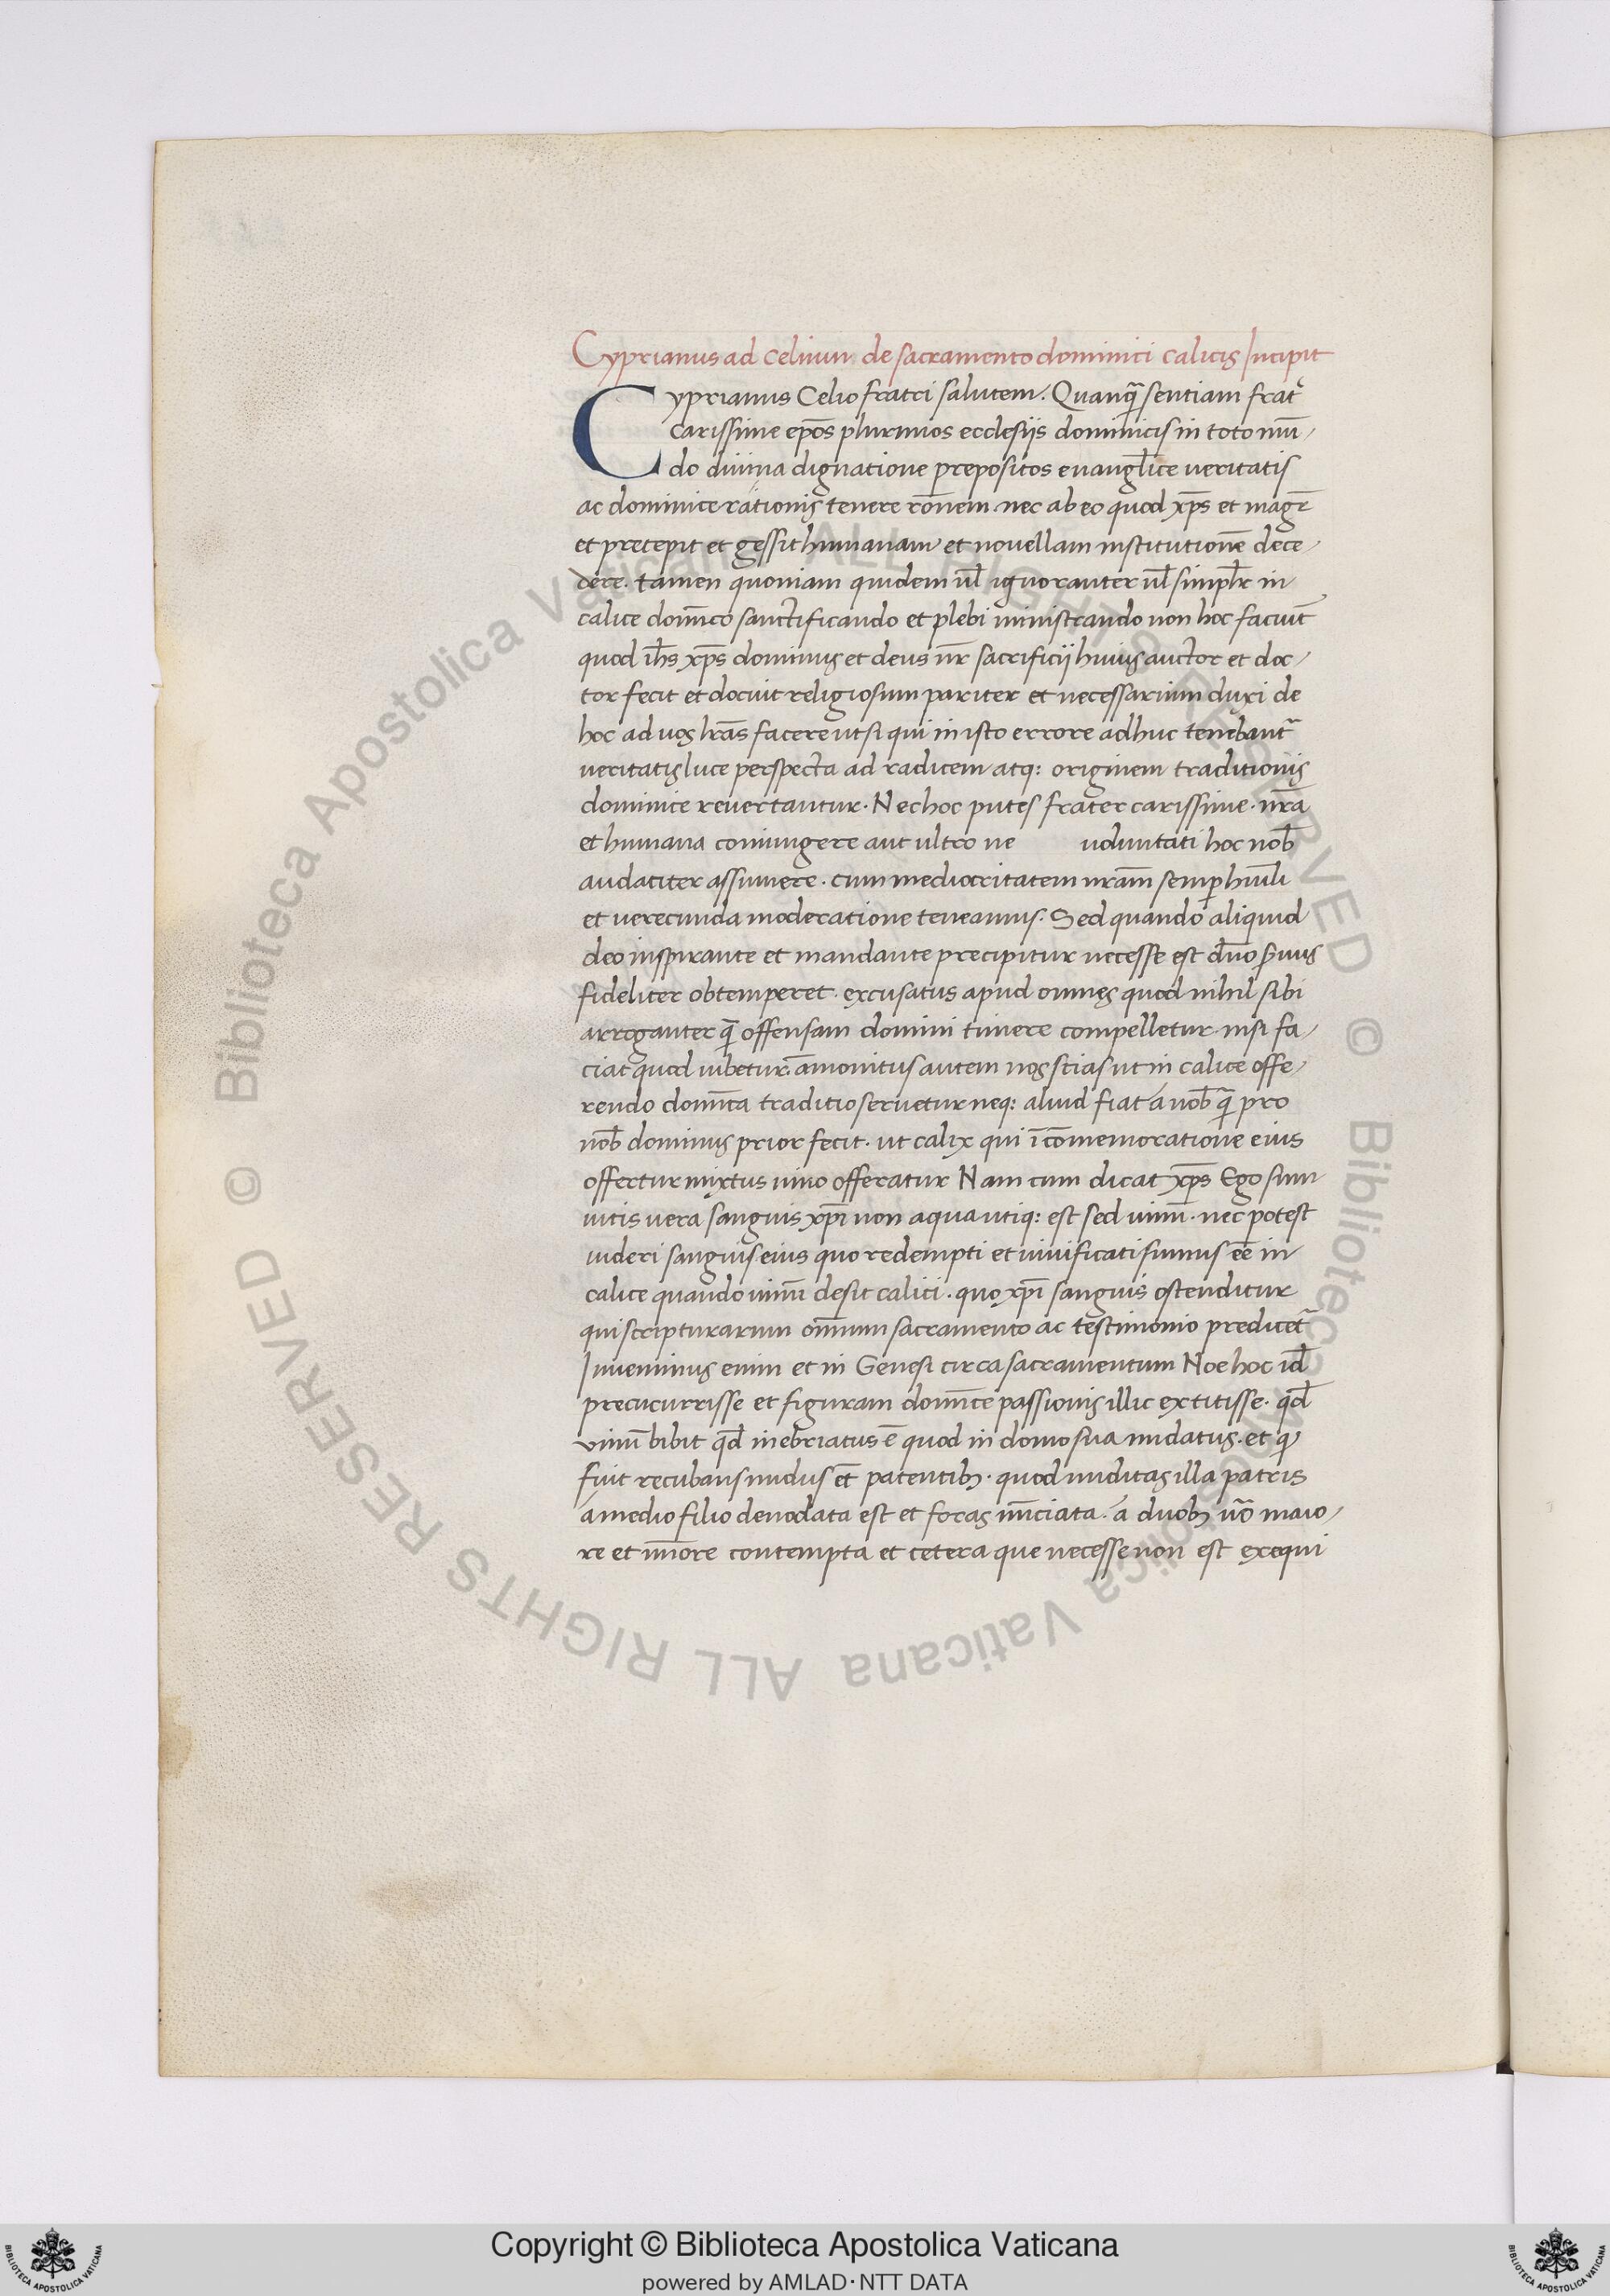 Cyprianus ad Celium de sacramento dominici calicis Incipit
Cyprianus Celio fratri salutem. Quanq̃ sentiam frat̃
carissime ep̃os plurimos ecclesijs dominicis in toto mũ
do diuina dignatione prepositos euangl̃ice ueritatis
ac dominice rationis tenere rõnem nec ab eo quod xp̃s et magr̃
et precepit et gessit humanam et nouellam institutionẽ dece
dere. tamen quoniam quidem ul̃ ignoranter ul̃ simpl̃r in
calice domĩco sanctificando et plebi ministrando non hoc faciũt
quod ih̃s xp̃s dominus et deus nr̃ sacrificij huius auctor et doc
tor fecit et docuit religiosum pariter et necessarium duxi de
hoc ad uos lr̃as facere ut si qui in isto errore adhuc tenebant̃
ueritatis luce perspecta ad radicem atq: originem traditionis
dominice reuertantur. Nec hoc putes frater carissime. nr̃a
et humana coniungere aut ultro ne uoluntati hoc nob̃
audaciter assumere. cum mediocritatem nr̃am semp hũili
et uerecunda moderatione teneamus. Sed quando aliquid
deo inspirante et mandante precipitur necesse est dño s̃uus
fideliter obtemperet. excusatus apud omnes quod nihil sibi
arroganter q̃ offensam domini timere compelletur. nisi fa
ciat quod iubetur. ãmonitus autem nos scias ut in calice offe
rendo domĩca traditio seruetur neq: aliud fiat á nob̃ q̃ pro
nob̃ dominus prior fecit. ut calix qui ĩ cõmemoratione eius
offertur mixtus uino offeratur Nam cum dicat xp̃s Ego sum
uitis uera sanguis xp̃i non aqua utiq: est sed uinũ. nec potest
uideri sanguis eius quo redempti et uiuificati sumus eẽ in
calice quando uinũ desit calici. quo xp̃i sanguis ostenditur
qui scripturarum om̃ium sacramento ac testimonio predicet̃
Inuenimus enim et in Genesi circa sacramentum Noe hoc id̃
precucurrisse et figuram domĩce passionis illic extitisse. qd̃
uinũ bibit qd̃ inebriatus ẽ quod in domo sua nudatus. et q
fuit recubans nudus et̃ patentibȝ. quod nuditas illa patris
á medio filio denodata est et foras nũciata. á duobȝ uõ maio
re et mĩore contempta et cetera que necesse non est exequi
Copyright © Biblioteca Apostolica Vaticana
powered by AMLAD·NTT DATA